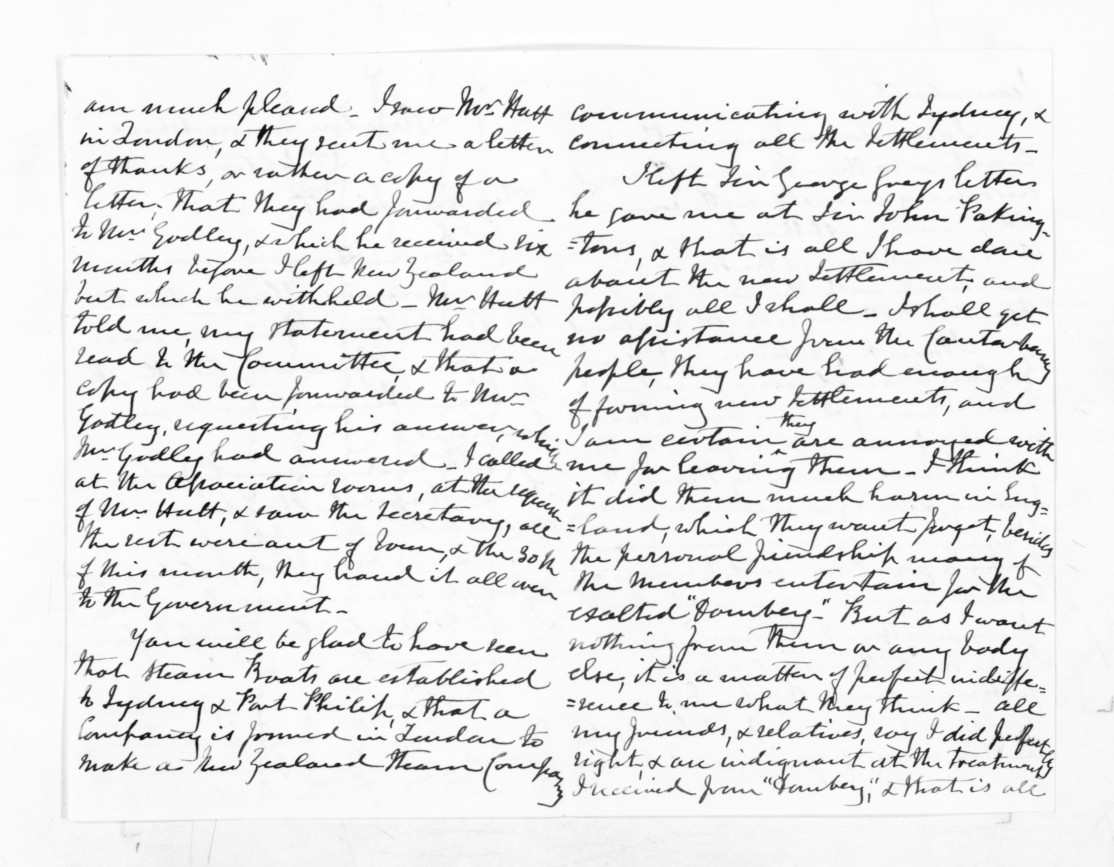 am much pleased - I saw Mr. Hutt
in London, & they sent me a letter
of thanks, or rather a copy of a
letter, that they had forwarded
to Mr. Godley, & which he received six
months before I left New Zealand
but which he withheld - Mr. Hutt
told me, my statement had been
read to the Committee, & that a
copy had been forwarded to Mr.
Godley, requesting his answer, which
Mr. Godley had answered - I called
at the Association rooms, at the request
of Mr. Hutt, & saw the Secretary, all
the rest were out of Town, & the 30th
of this month, they hand it all over
to the Government -
You will be glad to have seen
that Steam Boats are established
to Sydney & Port Philip, & that a
Company is formed in London to
make a New Zealand Steam Company
communicating with Sydney, &
connecting all the Settlements -
I left Sir George Greys letters
he gave me at Sir John Paking-
=tons, & that is all I have done
about the new Settlement, and
possibly all I shall - I shall get
no assistance from the Canterbury
people, they have had enough
of forming new Settlements, and
I am certain they are annoyed with
me for leaving them - I think
it did them much harm in Eng-
=land, which they wont forget, besides
the personal friendship many of
the Members entertain for the
exalted "Domberg" - But as I want
nothing from them or any body
else, it is a matter of perfect indiffe-
=rence to me what they think - all
my friends, & relatives, say I did perfectly
right, & are indignant at the treatment
I received from "Domberg", & that is all